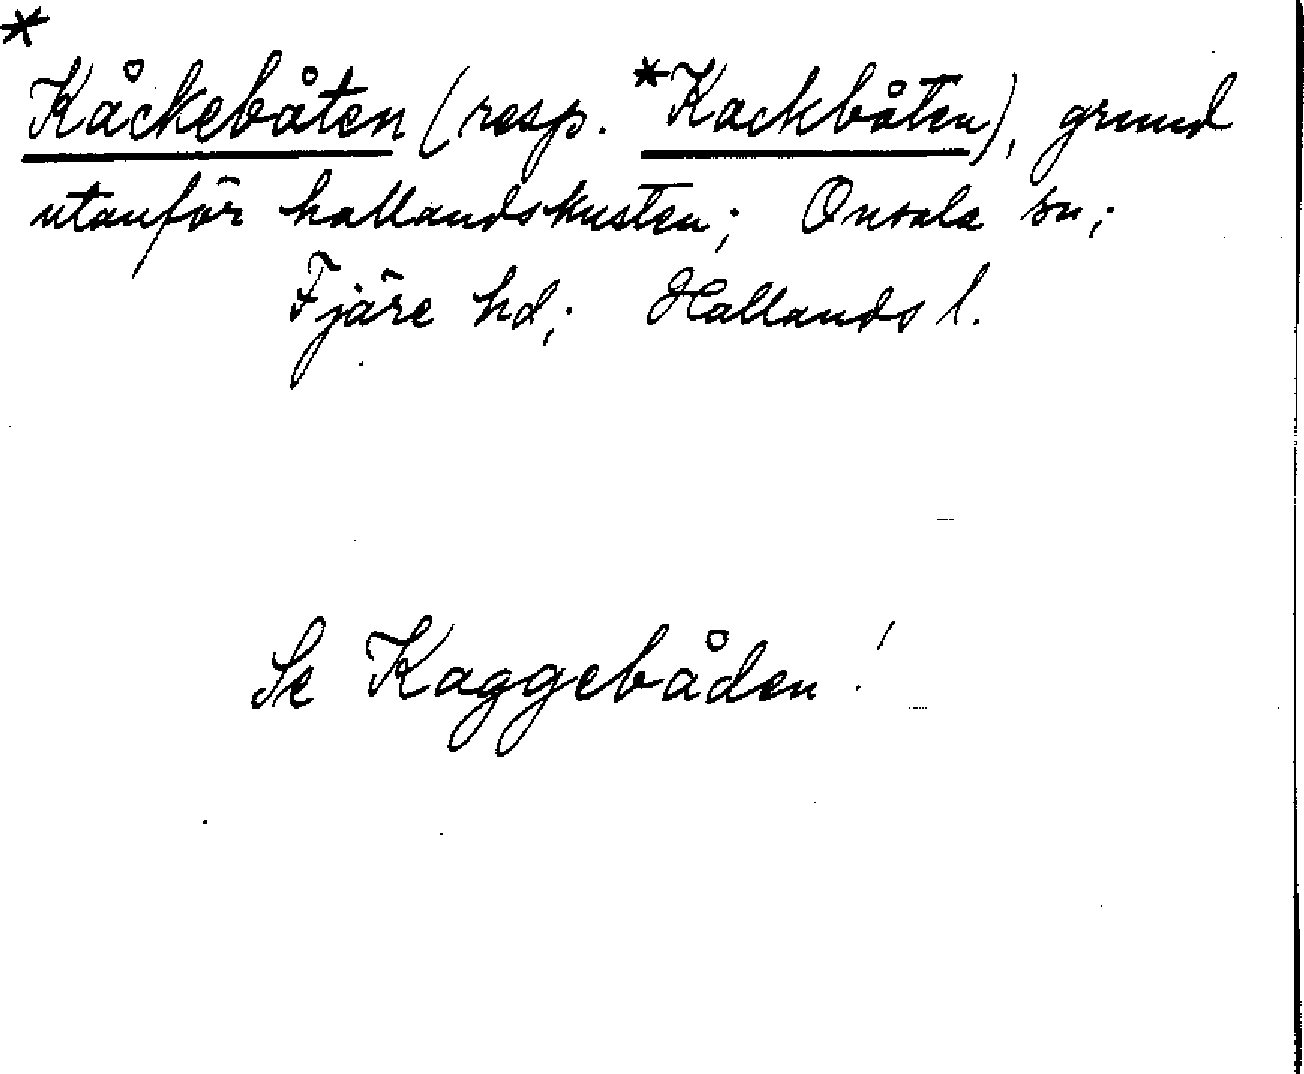 *
Kåckebåten (resp. *Kackbåten), grund
utanför hallandskusten; Onsala sn;
Fjäre hd; Hallands l.
Se Kaggebåden!